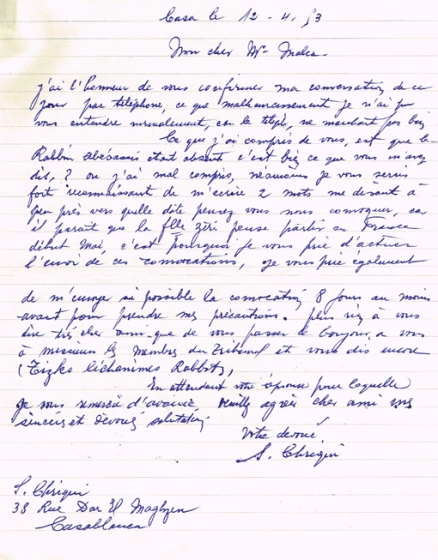 Casa le 12-4.73
Mon cher Mr
j'ai l'honneur de vous confirmer ma conversation de ce
jour par téléphone, ce que malheureusement je n'ai pu
vous entendre normalement, car le téléph, ne marchait pas bien
Ce que j'ai compris de vous, est que le
Rabbin Abécassis était absent c'est bien ce que vous m'avez
dit, ? ou j'ai mal compris, néanmoins je vous serais
fort reconnaissant de m'écrire 2 mots me disant à
peu près vers quelle date pensez vous nous convoquer, car
il paraît que la flle Ziri pense partir en France
début Mai, c'est pourquoi je vous prie d'activer
l'envoi de ces convocations, je vous prie également
de m'envoyer si possible la convocation 8 jours au moins
avant pour prendre mes précautions. plus rien à vous
dire très cher ami que de vous passer le bonjour, a vous
à messieurs les membres du Tribunal et vous dis encore
(Tizko léchanimes Rabbot),
En attendant votre réponse pour laquelle
je vous remercie d'avance, veuillez agréer cher ami mes
sincères et dévoués salutations
Votre dévoué
S. Chriqui
S. Chriqui
38 Rue Dar El Maghzen
Casablanca